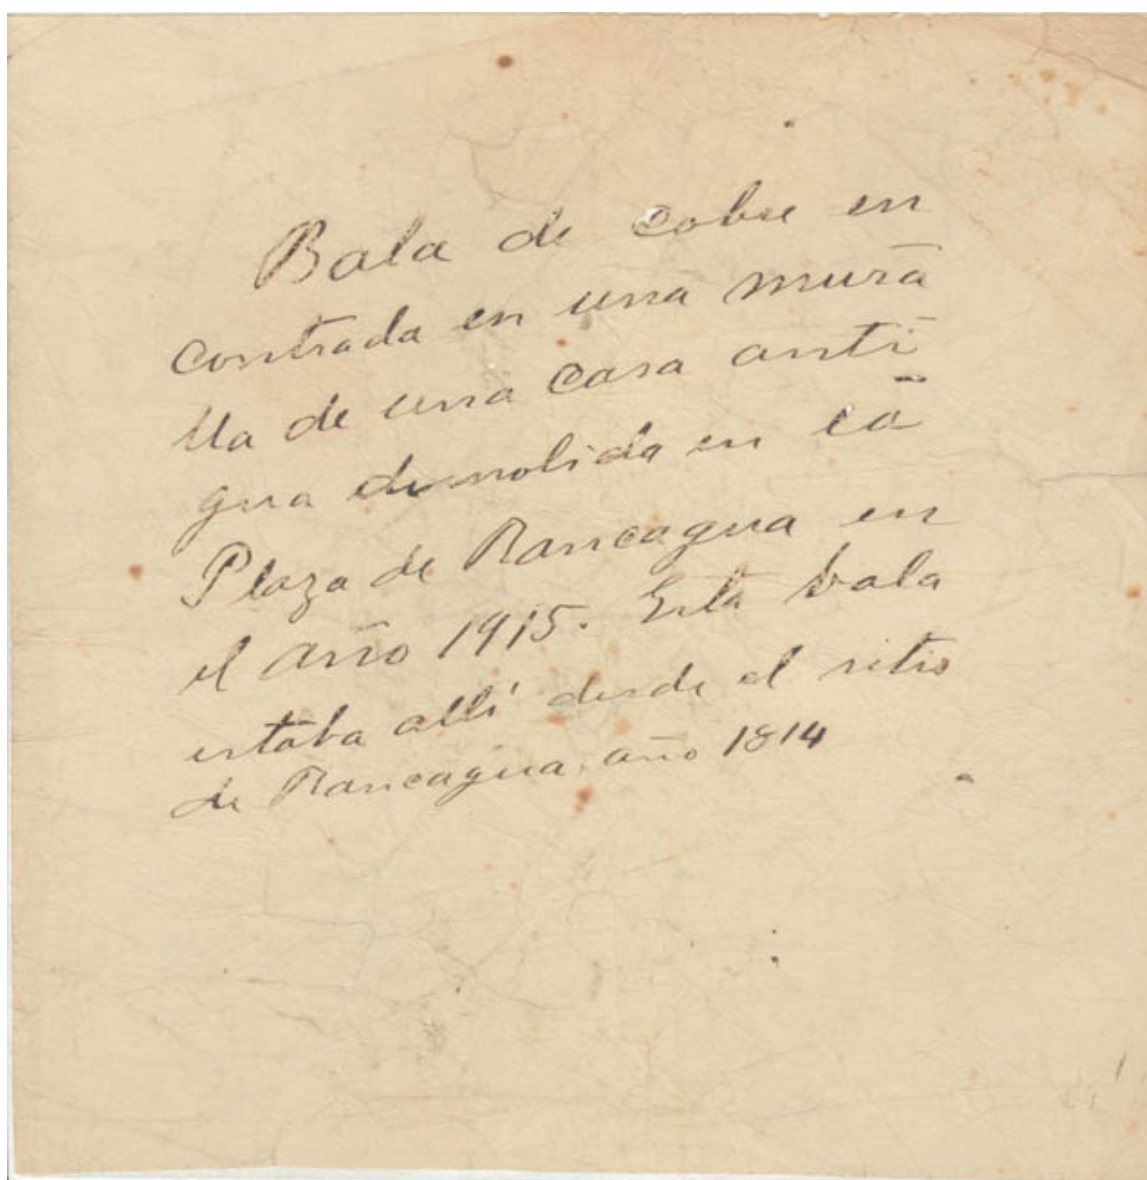 Bala de cobre en
contrada en una mura
lla de una casa anti
gua demolida en la
Plaza de Rancagua en
el año 1915. Esta bala
estaba allí desde el sitio
de Rancagua, año 1814